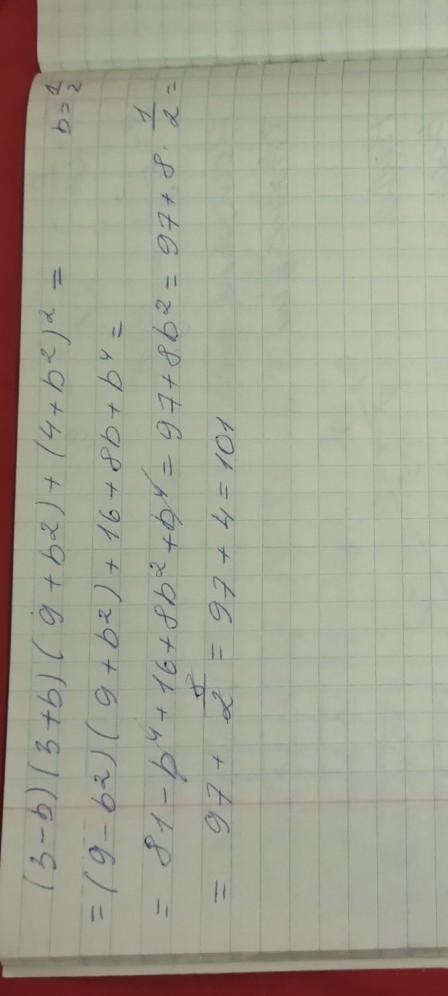 (3-b)(3+b)(9+b²)+(4+b²)²= b=1/2
=(9-b²)(9+b²)+16+8b+b⁴=
=81-b⁴+16+8b²+b⁴=97+8b²=97+8·1/2=
=97+8/2=97+4=101